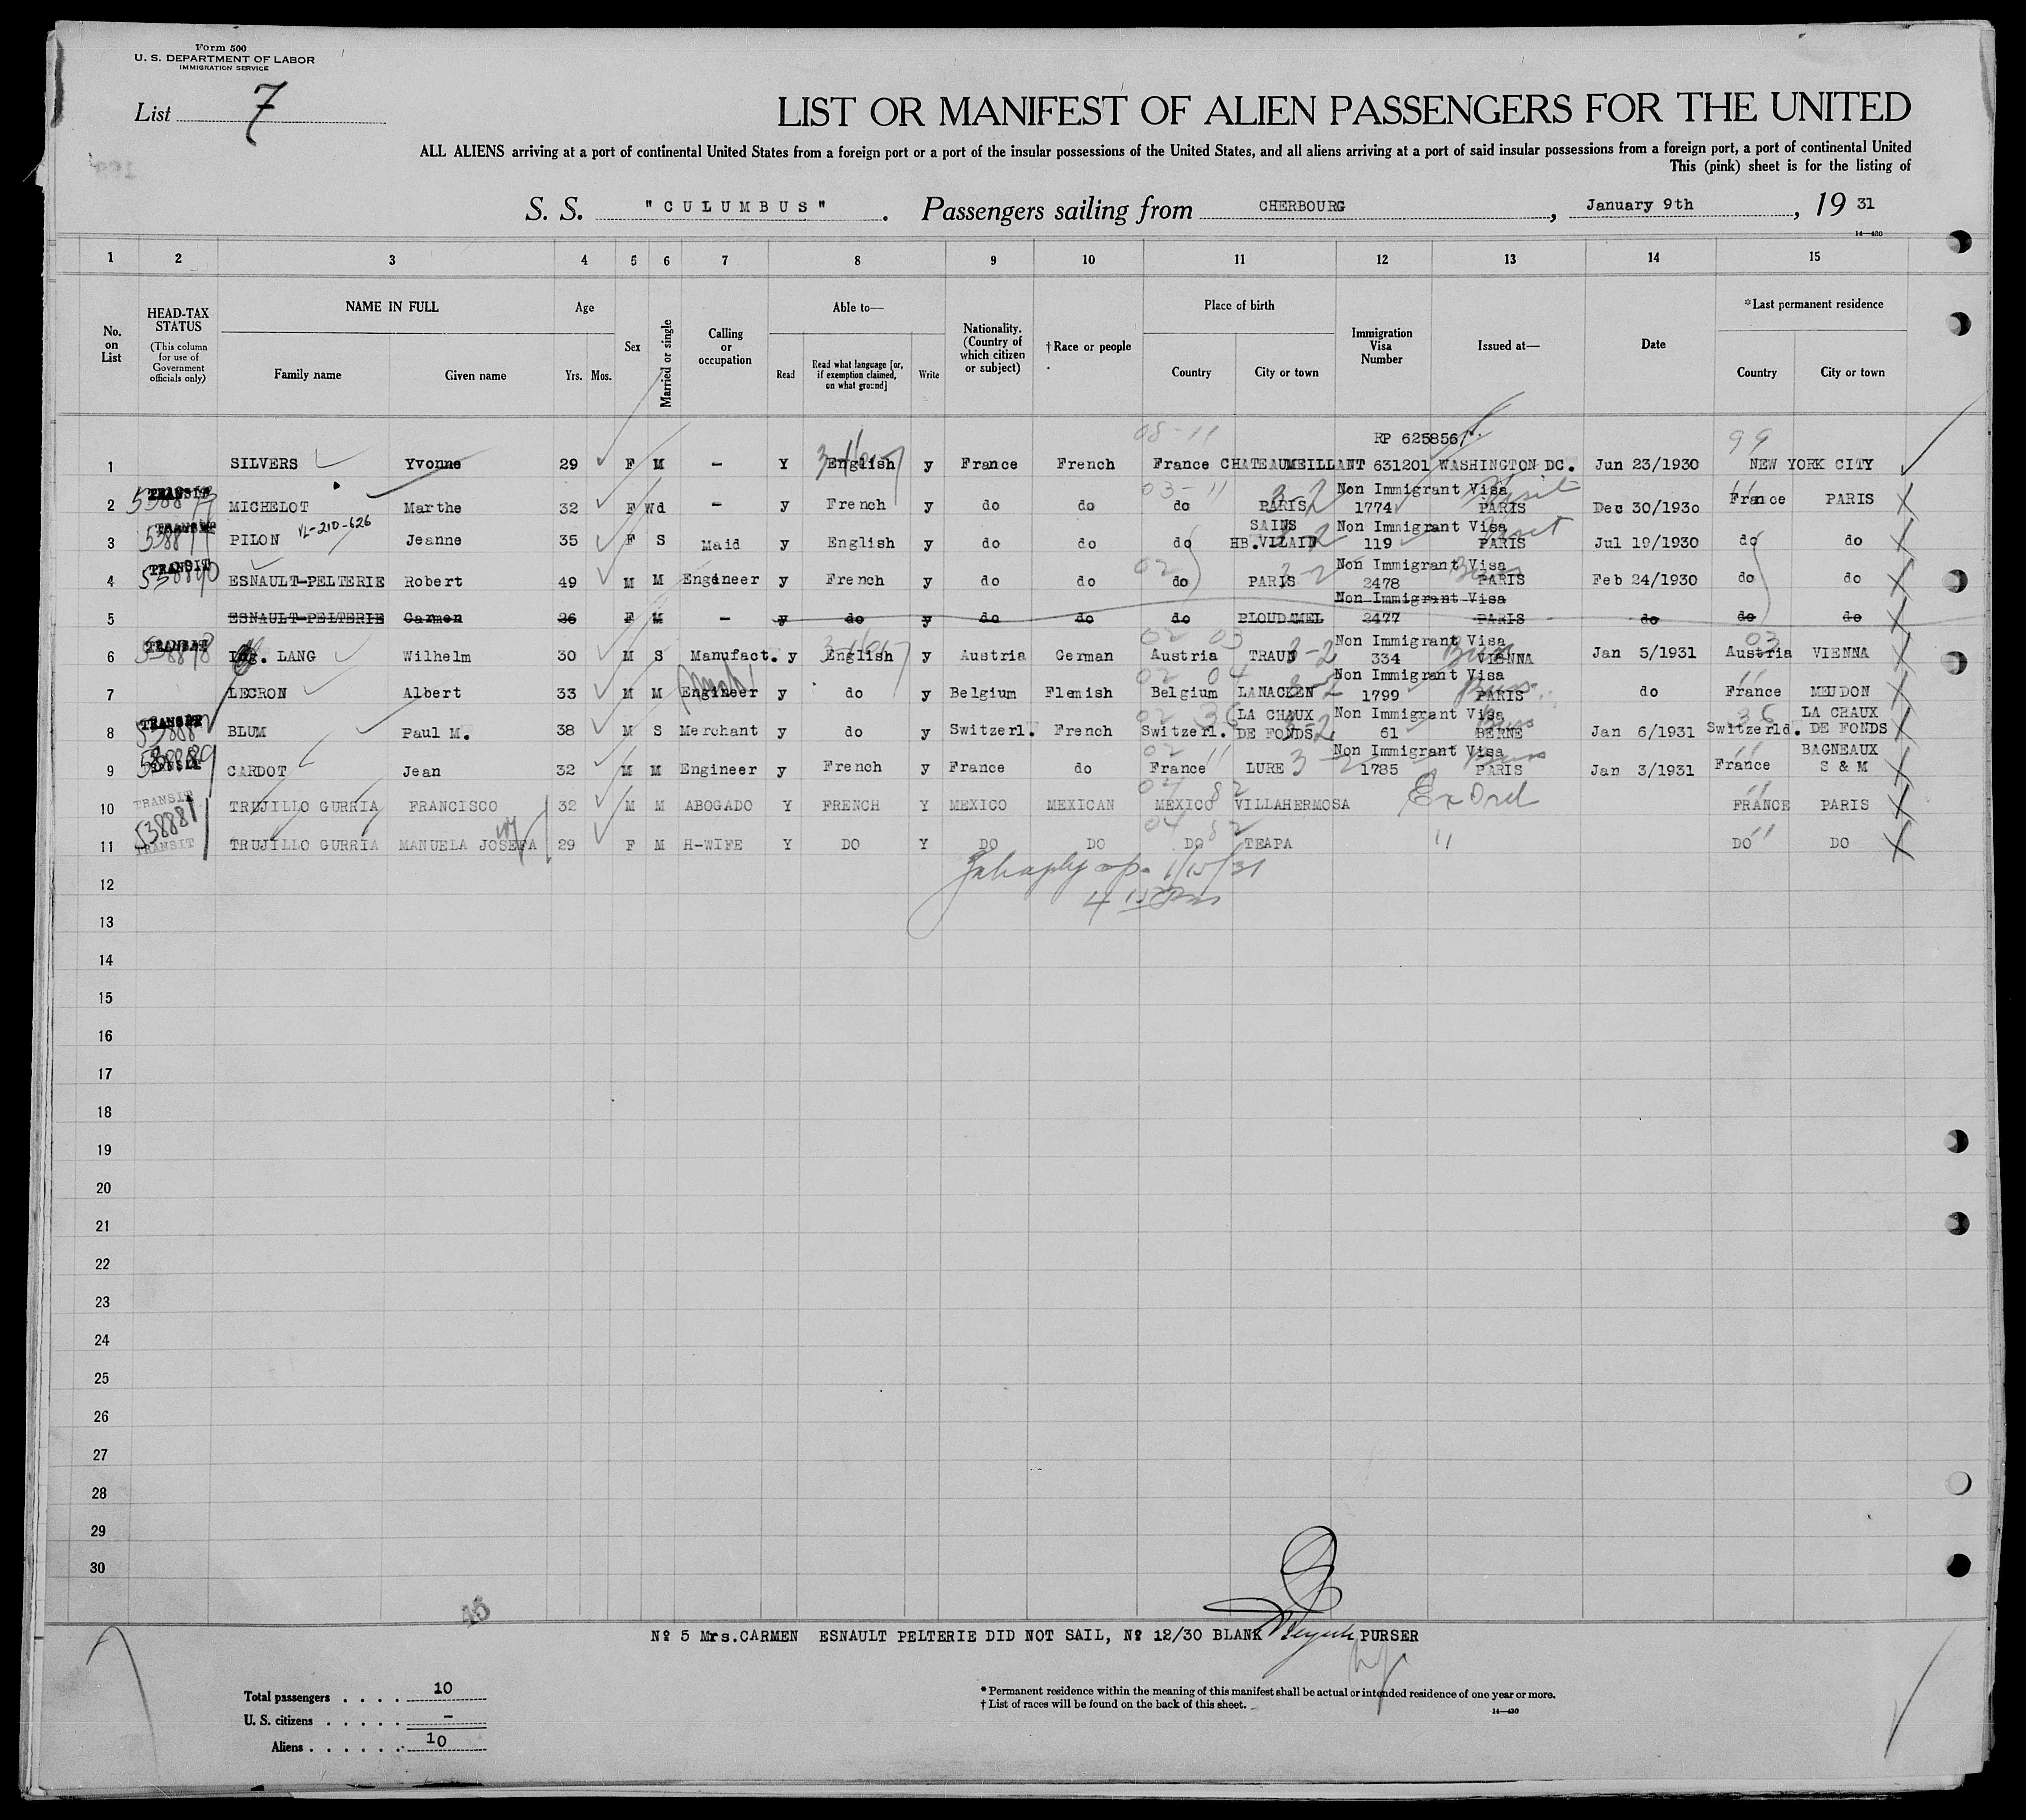 Form 500
U. S. DEPARTMENT OF LABOR
IMMIGRATION SERVICE
List 7
LIST OR MANIFEST OF ALIEN PASSENGERS FOR THE UNITED
ALL ALIENS arriving at a port of continental United States from a foreign port or a port of the insular possessions of the United States, and all aliens arriving at a port of said insular possessions from a foreign port, a port of continental United
This (pink) sheet is for the listing of
S. S. "CULUMBUS". Passengers sailing from CHERBOURG, January 9th, 19 31
14—430
1 2 3 4 5 6 7 8 9 10 11 12 13 14 15
No. on List
HEAD-TAX STATUS (This column for use of Government officials only)
NAME IN FULL Family name Given name
Age Yrs. Mos.
Sex
Married or single
Calling or occupation
Able to— Read Read what language [or, if exemption claimed, on what ground] Write
Nationality. (Country of which citizen or subject)
† Race or people
Place of birth Country City or town
Immigration Visa Number
Issued at—
Date
*Last permanent residence Country City or town
08-11 RP 625856 99
1 SILVERS Yvonne 29 F M - Y English y France French France CHATEAUMEILLANT 631201 WASHINGTON DC. Jun 23/1930 NEW YORK CITY
TRANSIT 03-11 3-2 Non Immigrant Visa Visit
2 MICHELOT Marthe 32 F Wd - y French y do do do PARIS 1774 PARIS Dec 30/1930 France PARIS
TRANSIT VL-210-626 SAINS Non Immigrant Visa
3 PILON Jeanne 35 F S Maid y English y do do do HB.VILAIN 119 PARIS Jul 19/1930 do do
TRANSIT 02 Non Immigrant Visa
4 ESNAULT-PELTERIE Robert 49 M M Engineer y French y do do do PARIS 2478 PARIS Feb 24/1930 do do
Non Immigrant Visa
5 ESNAULT-PELTERIE Carmen 26 F M - y do y do do do PLOUDAMEL 2477 PARIS do do do
TRANSIT 02 03 Non Immigrant Visa 03
6 Ing. LANG Wilhelm 30 M S Manufact. y English y Austria German Austria TRAUN 334 VIENNA Jan 5/1931 Austria VIENNA
02 04 Non Immigrant Visa
7 LECRON Albert 33 M M Engineer y do y Belgium Flemish Belgium LANACKEN 1799 PARIS do France MEUDON
TRANSIT 02 36 LA CHAUX Non Immigrant Visa 36 LA CHAUX
8 BLUM Paul M. 38 M S Merchant y do y Switzerl. French Switzerl. DE FONDS 61 BERNE Jan 6/1931 Switzerld. DE FONDS
02 11 Non Immigrant Visa BAGNEAUX
9 CARDOT Jean 32 M M Engineer y French y France do France LURE 3-2 1785 PARIS Jan 3/1931 France S & M
TRANSIT 04 82
10 TRUJILLO GURRIA FRANCISCO 32 M M ABOGADO Y FRENCH Y MEXICO MEXICAN MEXICO VILLAHERMOSA FRANCE PARIS
538881 04 82
11 TRANSIT TRUJILLO GURRIA MANUELA JOSEFA 29 F M H-WIFE Y DO Y DO DO DO TEAPA " DO DO
1/15/31
12
13
14
15
16
17
18
19
20
21
22
23
24
25
26
27
28
29
30
Nº 5 Mrs.CARMEN ESNAULT PELTERIE DID NOT SAIL, Nº 12/30 BLANK PURSER
Total passengers . . . . 10
U. S. citizens . . . . . -
Aliens . . . . . . 10
* Permanent residence within the meaning of this manifest shall be actual or intended residence of one year or more.
† List of races will be found on the back of this sheet.
14—430